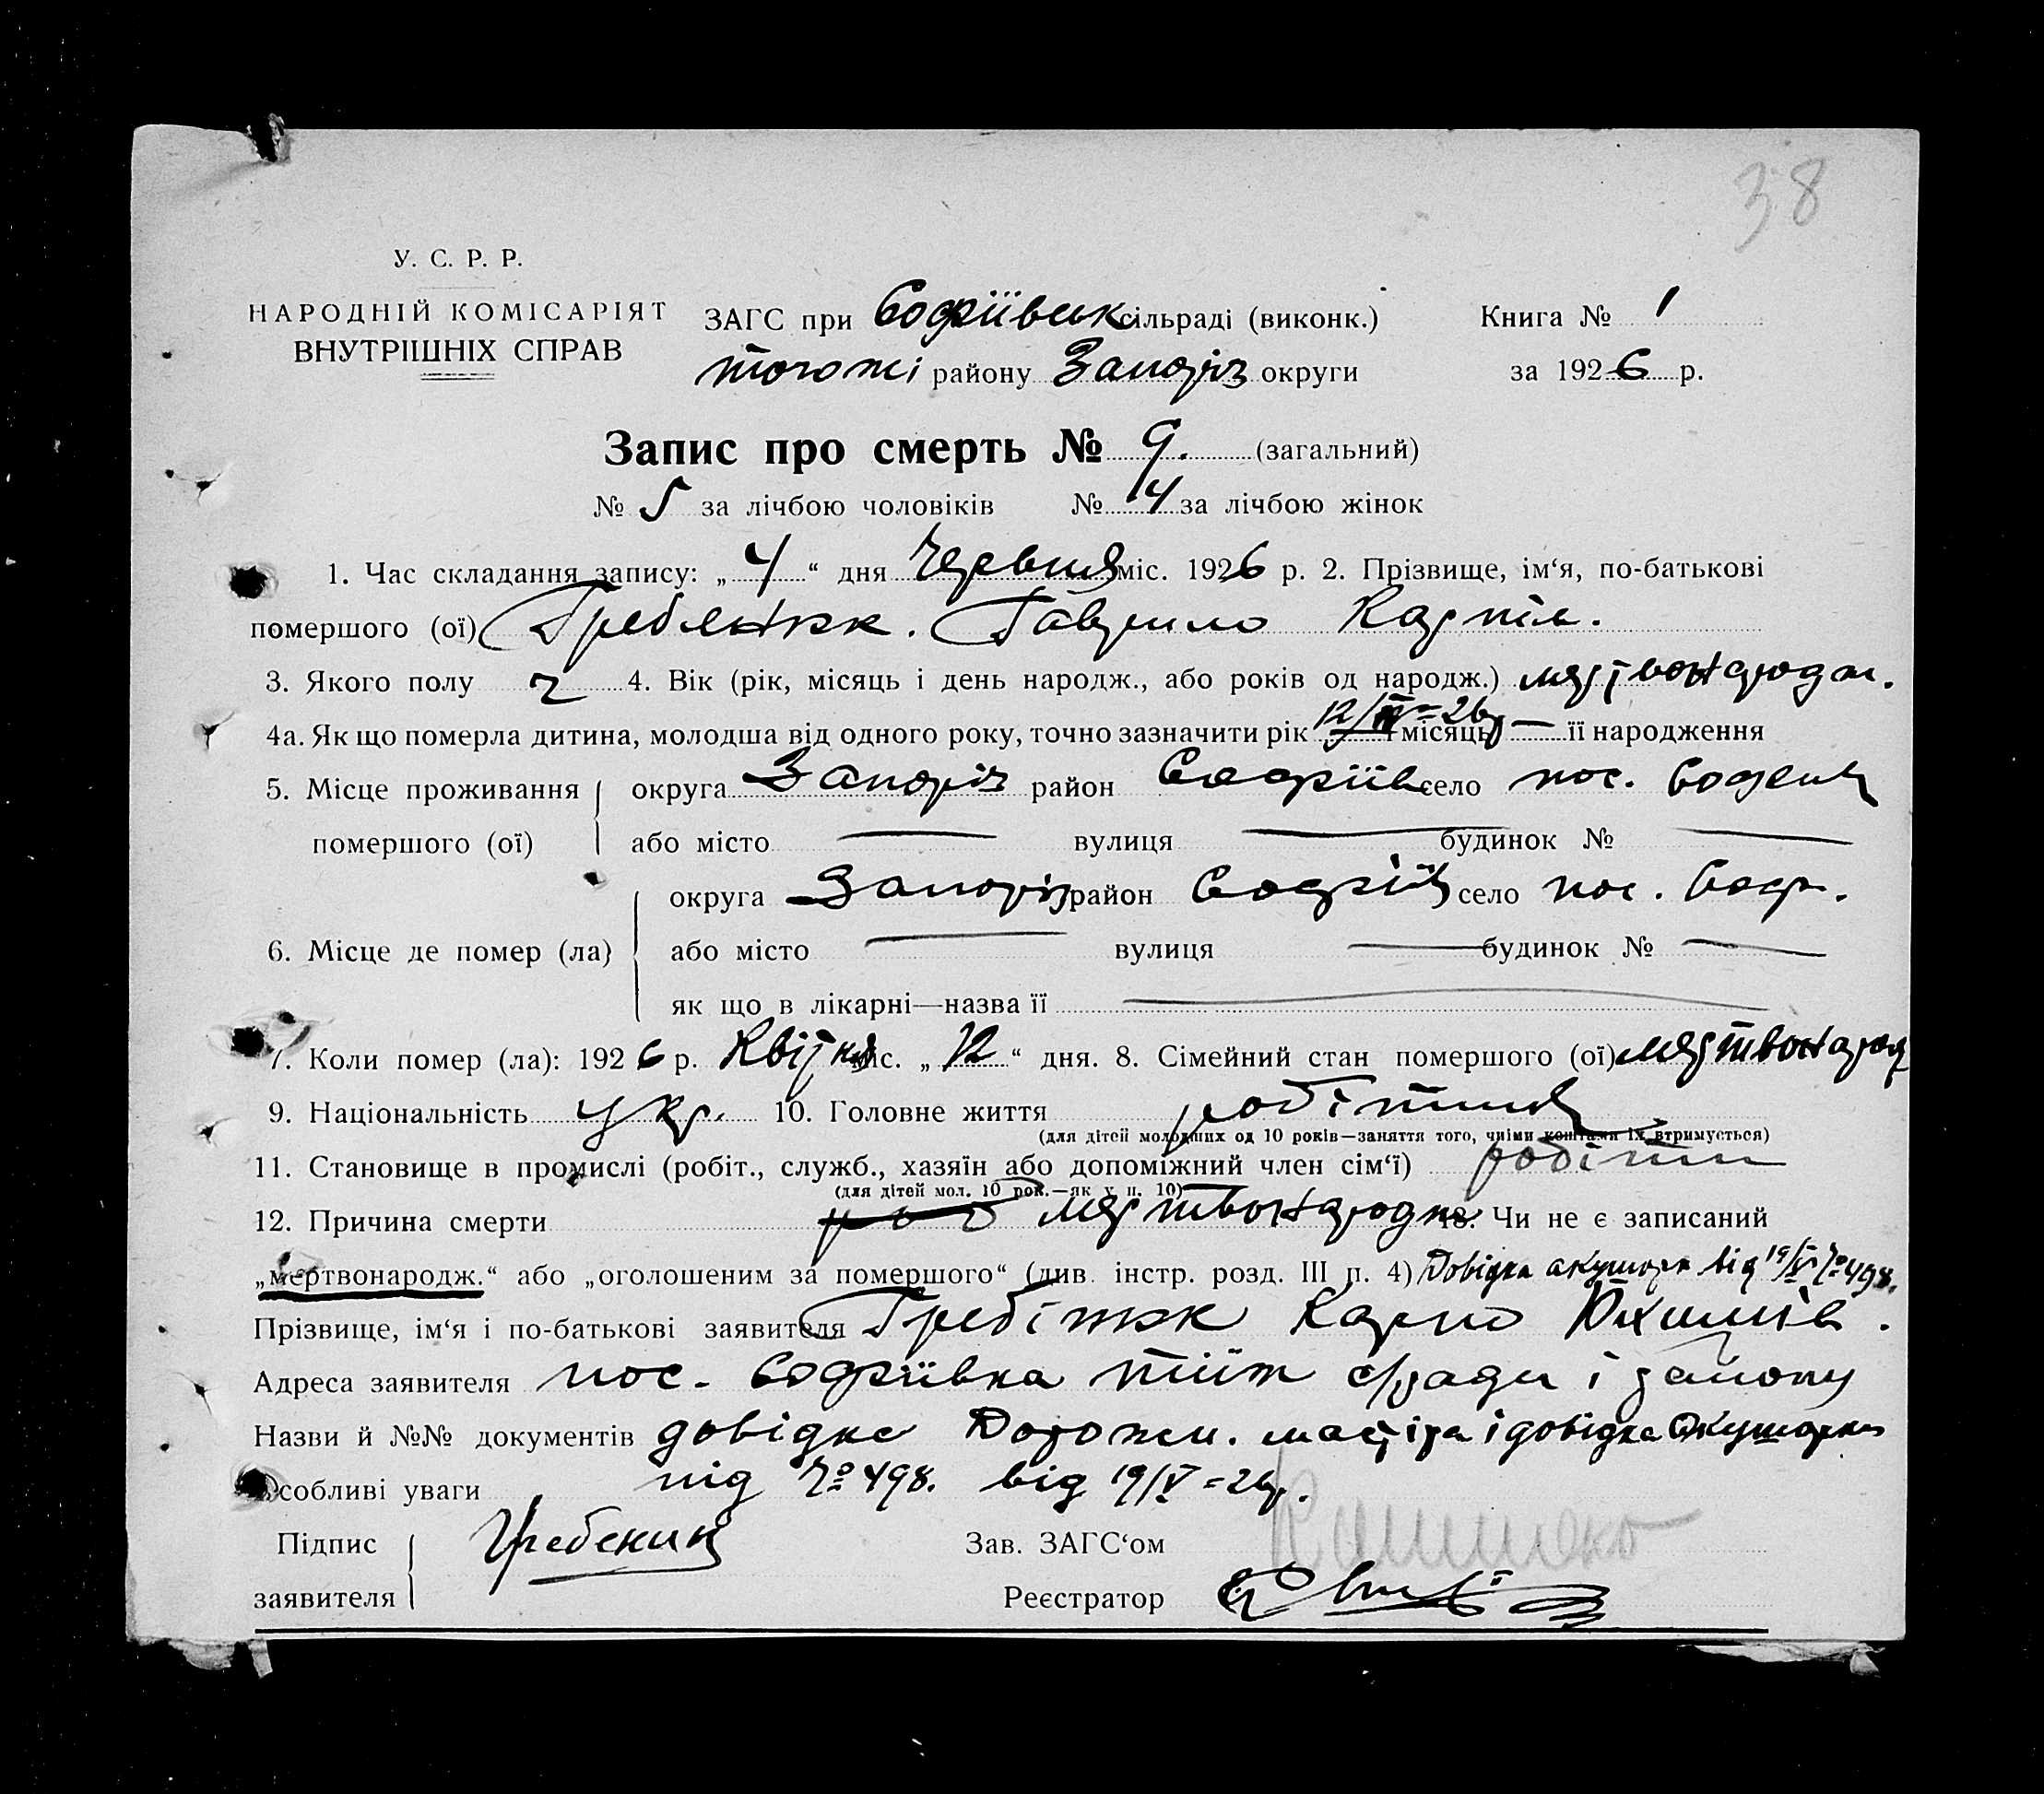 38
У. С. Р. Р.
НАРОДНІЙ КОМІСАРІЯТ
ВНУТРІШНІХ СПРАВ
ЗАГС при Софіївськ сільраді (виконк.)
тогожі району Запоріз округи
Книга № 1
за 1926 р.
Запис про смерть № 9. (загальний)
№ 5 за лічбою чоловіків № 4 за лічбою жінок
1. Час складання запису: „4“ дня Червня міс. 1926 р. 2. Прізвище, ім‘я, по-батькові
помершого (ої) Гаврило Карпів.
3. Якого полу ч 4. Вік (рік, місяць і день народж., або років од народж.) мертвонародж.
4а. Як що померла дитина, молодша від одного року, точно зазначити рік 12/IV=26р місяць — її народження
5. Місце проживання округа Запоріз район Софіїв село пос. Софіївк
помершого (ої) або місто — вулиця — будинок № —
округа Запоріз район Софіїв село пос. Соф.
6. Місце де помер (ла) або місто — вулиця — будинок № —
як що в лікарні—назва її —
7. Коли помер (ла): 1926 р. Квітня міс. „12“ дня. 8. Сімейний стан помершого (ої) мертвонарод
9. Національність укр. 10. Головне життя робітник
(для дітей молодших од 10 років—заняття того, чиїми коштами їх втримується)
11. Становище в промислі (робіт., служб., хазяїн або допоміжний член сім‘ї) робітн
(для дітей мол. 10 рок.—як у п. 10)
12. Причина смерти мертвонародж 13. Чи не є записаний
„мертвонародж.“ або „оголошеним за помершого“ (див. інстр. розд. III п. 4) Довідка акушорк від 19/V № 498.
Прізвище, ім‘я і по-батькові заявителя Карпо Юхимів.
Адреса заявителя пос. Софіївка тіїж с/ради і району
Назви й №№ документів довідка Дорожн. мастіра і довідка Акушорки
Особливі уваги під № 498. від 19/V=26р.
Підпис
заявителя Гребеник
Зав. ЗАГС‘ом
Реєстратор